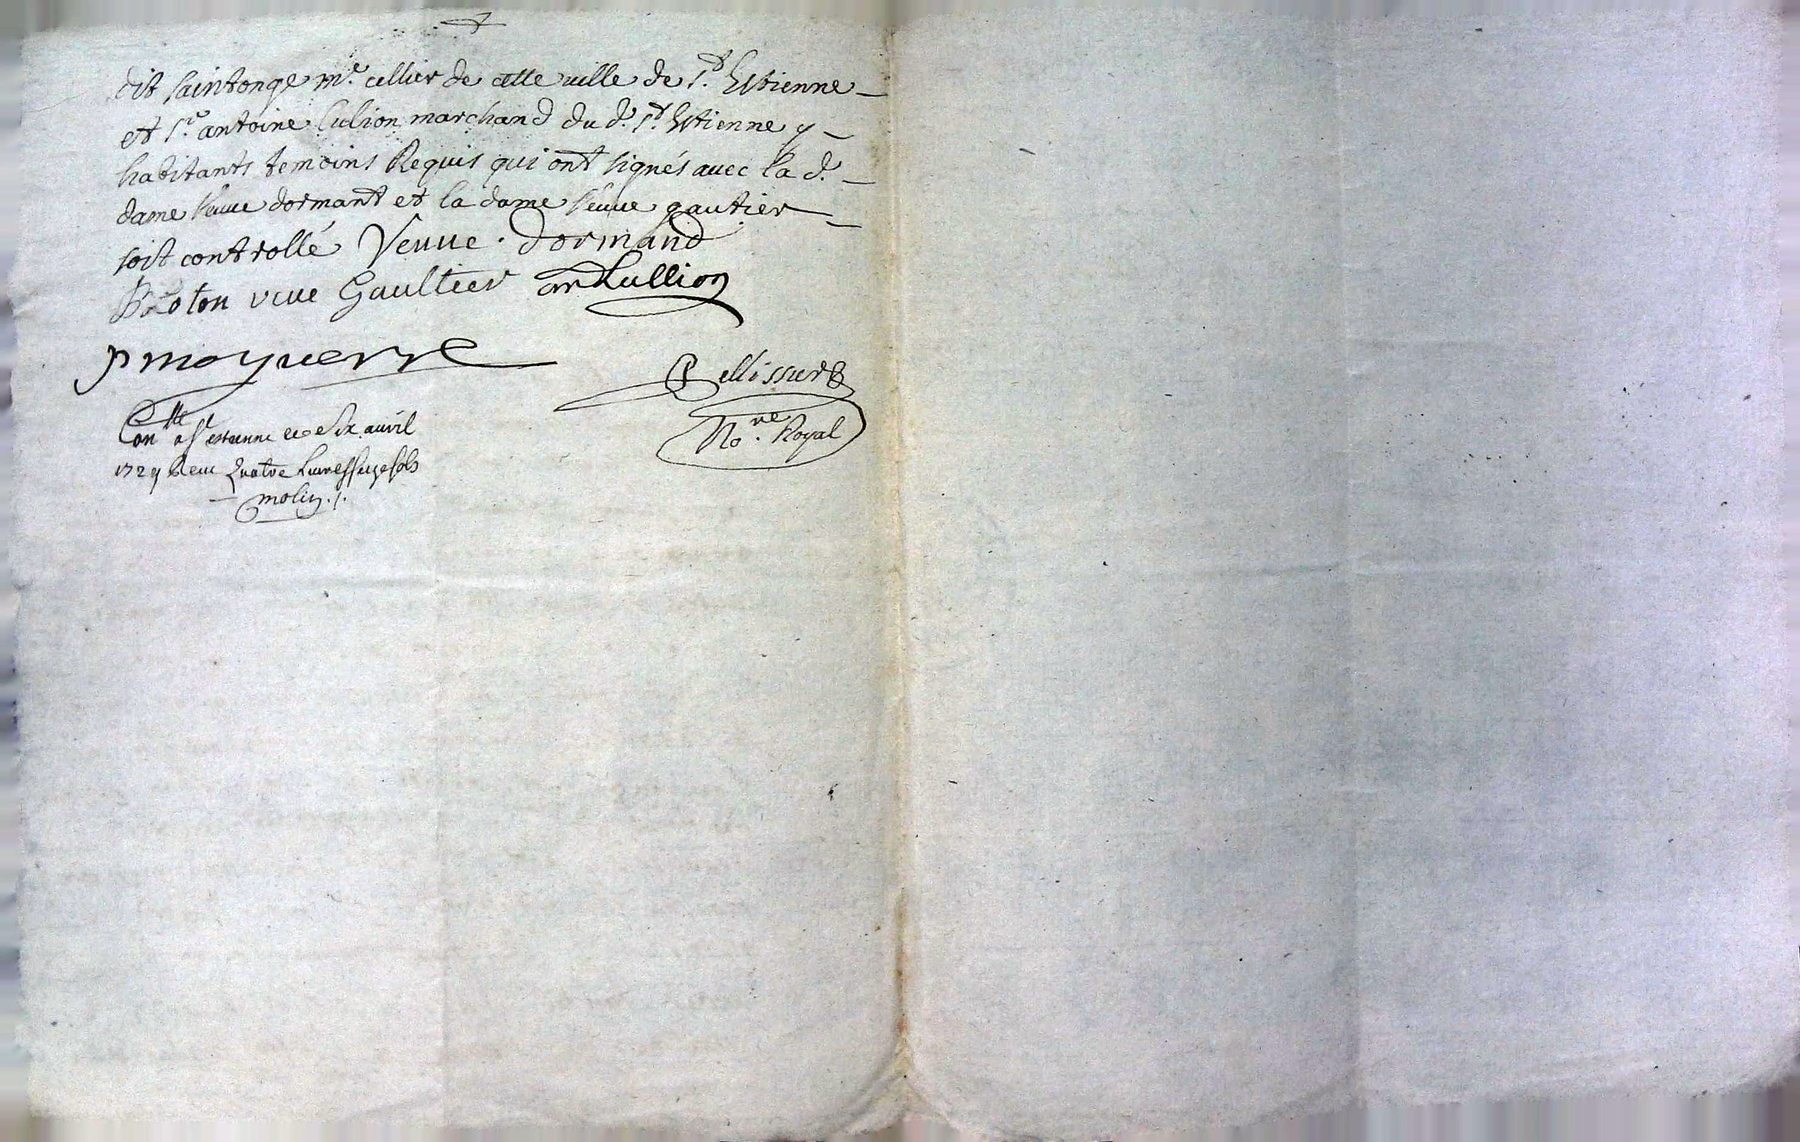 dit saintonge m.e cellier de cette ville de s.t Estienne
et s.r antoine Culion marchand du d. s.t Estienne y
habitants temoins Requis qui ont signés avec la d.
dame veuve dormant et la dame veuve gautier
soit controllé Veuue dormand
veue Gaultier an Lullion
Pellissier
No.re Royal
Con.lle a s.t estienne ce six auril
1729 Receu quatre liures seize sols
molin